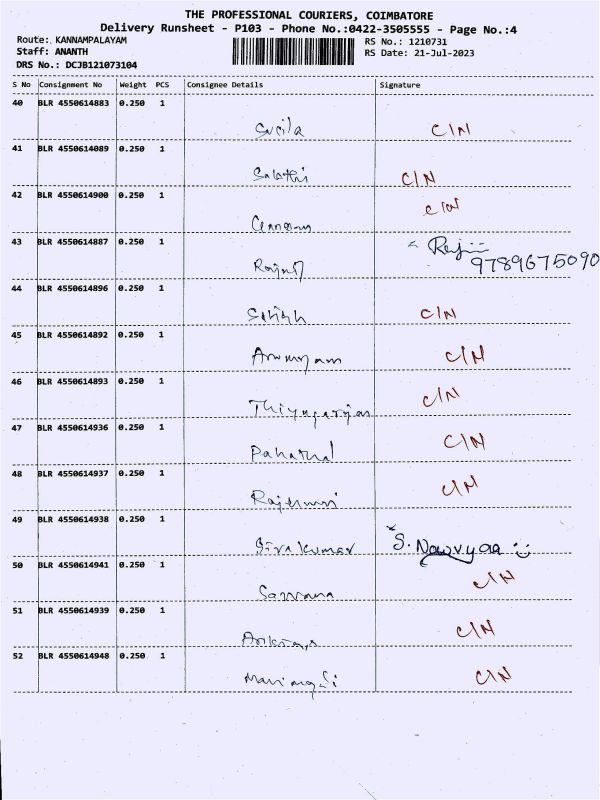 THE PROFESSIONAL COURIERS, COIMBATORE
Delivery Runsheet - P103 - Phone No.:0422-3505555 - Page No.:4
Route: KANNAMPALAYAM
RS No.: 1210731
Staff: ANANTH
RS Date: 21-Jul-2023
DRS No.: DCJB121073104
S No Consignment No Weight PCS Consignee Details Signature
40 BLR 4550614883 0.250 1
Sucila C/N
41 BLR 4550614089 0.250 1
Salathi C/N
42 BLR 4550614900 0.250 1
C/N
43 BLR 4550614887 0.250 1
9789675090
44 BLR 4550614896 0.250 1
Satish C/N
45 BLR 4550614892 0.250 1
Arumugam C/N
46 BLR 4550614893 0.250 1
Thiyagarajan C/N
47 BLR 4550614936 0.250 1
Pahathal C/N
48 BLR 4550614937 0.250 1
C/N
49 BLR 4550614938 0.250 1
Sivakumar S. Nawvyaa
50 BLR 4550614941 0.250 1
Saravana C/N
51 BLR 4550614939 0.250 1
C/N
52 BLR 4550614948 0.250 1
C/N